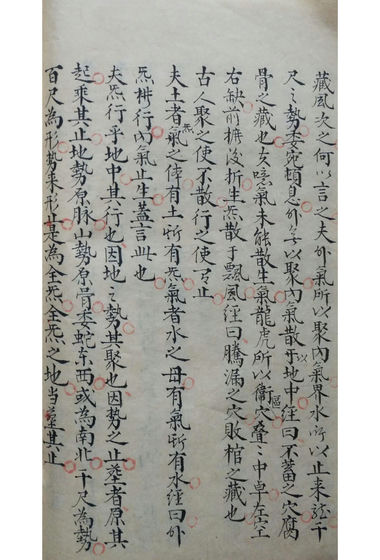 藏風次之何以言之夫外氣所以聚內氣界水所以止来龍千
尺之勢委宛頓息外无以聚內氣散于地中経曰不蓄之穴腐
骨之藏也夫噫氣未能散生氣龍虎所以衛區穴叠〻中阜左空
右缺前曠後折生炁散于飄風經曰騰漏之穴敗棺之藏也
古人聚之使不散行之使有止
夫土者氣之体有土斯有炁氣者水之母有氣斯有水經曰外
炁橫行內氣止生蓋言此也
夫炁行乎地中其行也因地〻勢其聚也因勢之止塟者原其
起乘其止地勢原脉山勢原骨委蛇东西或為南北千尺為勢
百尺為形勢来形止是為全炁全炁之地当塟其止